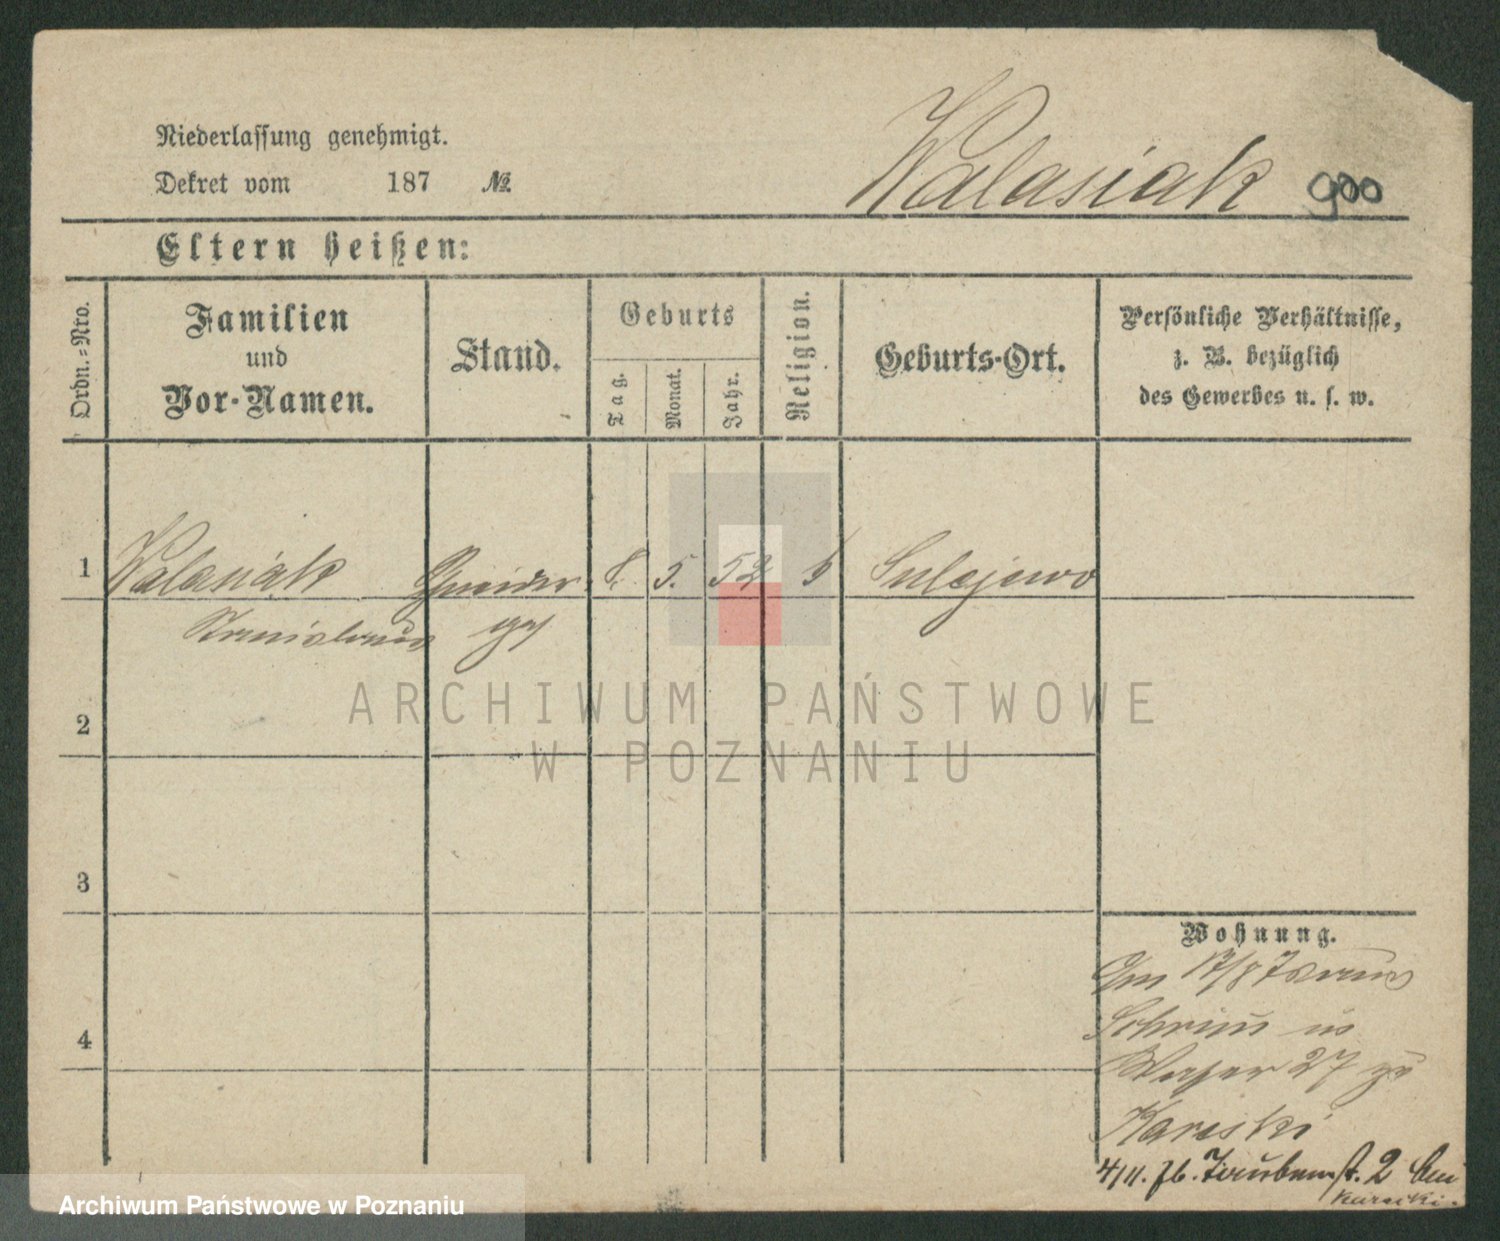 Niederlassung genehmigt.
Dekret vom 187 №
Walasiak 900
Eltern heißen:
Ordn.=Nro.
Familien
und
Vor-Namen.
Stand.
Geburts
Tag.
Monat.
Jahr.
Religion.
Geburts-Ort.
Persönliche Verhältnisse,
z. B. bezüglich
des Gewerbes u. s. w.
1 Walasiak Schneider 8. 5. 52 Sulejewo
Stanislaus
2
3
4
Wohnung.
Am 17/8 78 aus
Schrim in
Wasser 27 zu
Kareski
4/11. 2 bei
Kareski.
ARCHIWUM PAŃSTWOWE
W POZNANIU
Archiwum Państwowe w Poznaniu